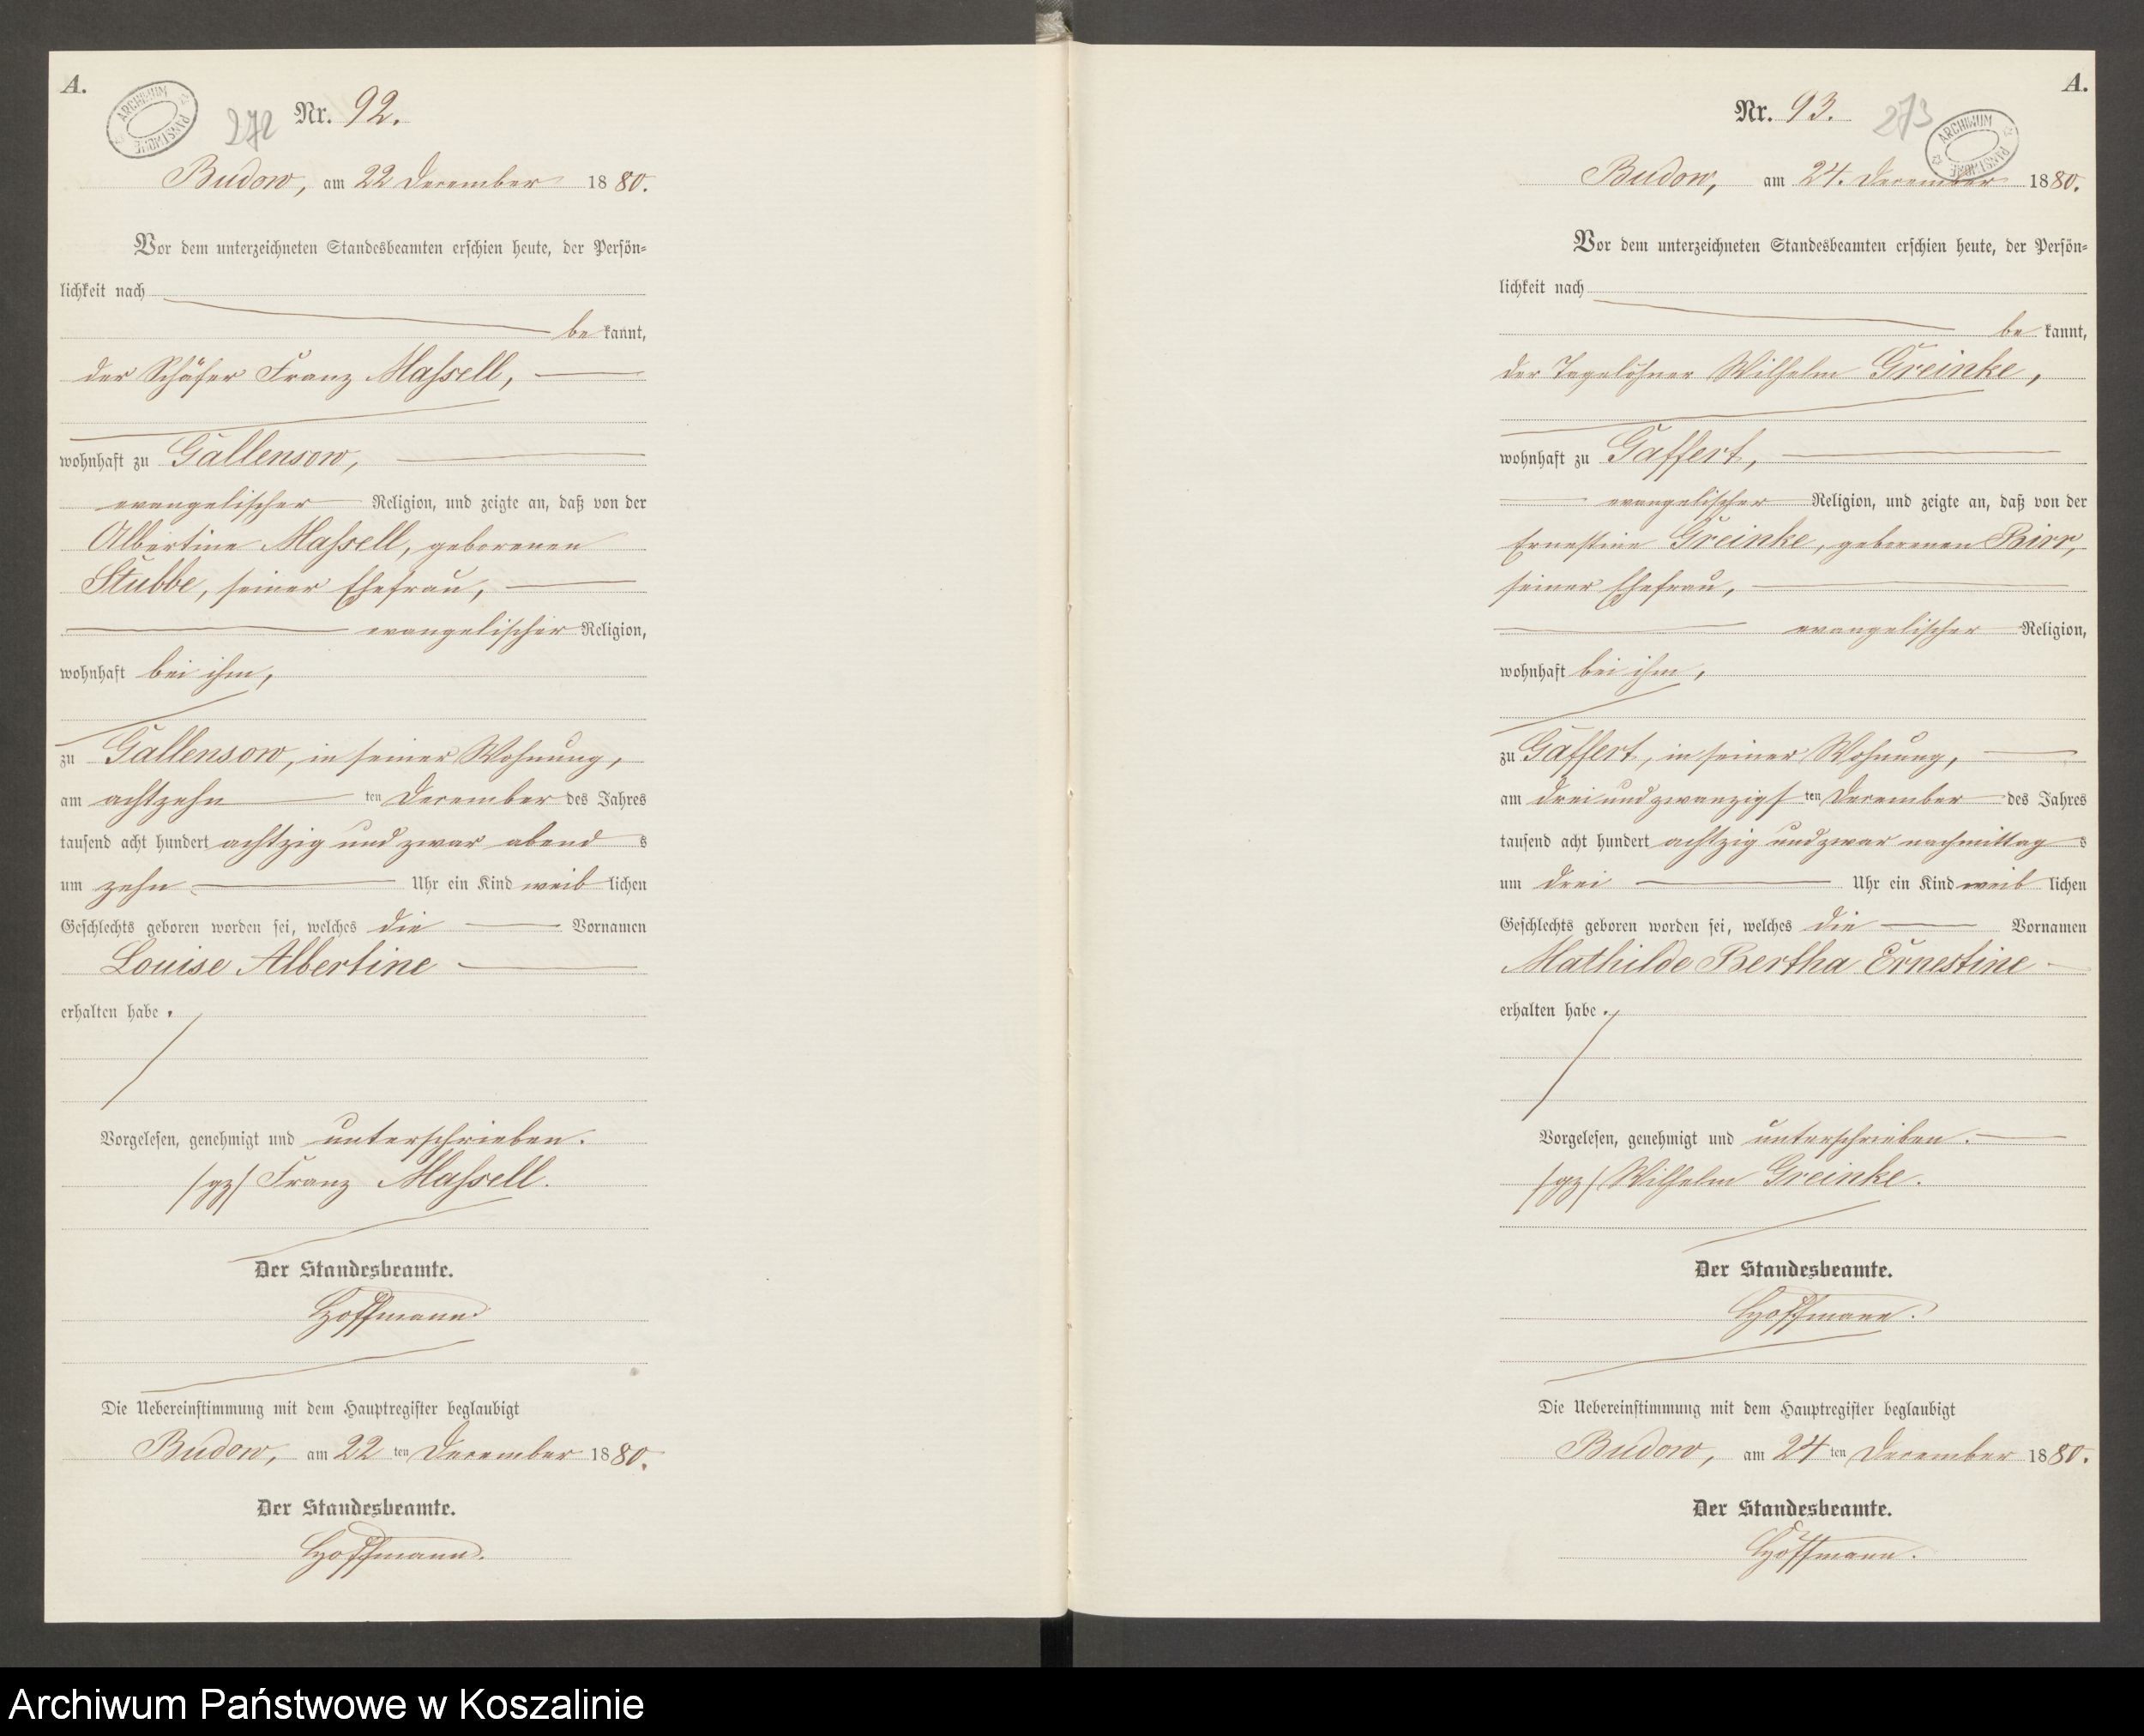 A.
ARCHIWUM PAŃSTWOWE
272
Nr. 92.
Budow, am 22 December 1880.
Vor dem unterzeichneten Standesbeamten erschien heute, der Persön-
lichkeit nach
bekannt,
der Schäfer Franz Massell,
wohnhaft zu Gallensow,
evangelischer Religion, und zeigte an, daß von der
Albertine Massell, geborenen
Stubbe, seiner Ehefrau,
evangelischer Religion,
wohnhaft bei ihm,
zu Gallensow, in seiner Wohnung,
am achtzehn ten December des Jahres
tausend acht hundert achtzig und zwar abends
um zehn Uhr ein Kind weiblichen
Geschlechts geboren worden sei, welches die Vornamen
Louise Albertine
erhalten habe.
Vorgelesen, genehmigt und unterschrieben.
/gz/ Franz Massell.
Der Standesbeamte.
Hoffmann
Die Uebereinstimmung mit dem Hauptregister beglaubigt
Budow, am 22 ten December 1880.
Der Standesbeamte.
Hoffmann.
A.
Nr. 93.
273
ARCHIWUM PAŃSTWOWE
Budow, am 24. December 1880.
Vor dem unterzeichneten Standesbeamten erschien heute, der Persön-
lichkeit nach
bekannt,
der Tagelöhner Wilhelm Greinke,
wohnhaft zu Gaffert,
evangelischer Religion, und zeigte an, daß von der
Ernestine Greinke, geborenen Birr,
seiner Ehefrau,
evangelischer Religion,
wohnhaft bei ihm,
zu Gaffert, in seiner Wohnung,
am drei und zwanzigsten December des Jahres
tausend acht hundert achtzig und zwar nachmittags
um drei Uhr ein Kind weiblichen
Geschlechts geboren worden sei, welches die Vornamen
Mathilde Bertha Ernestine
erhalten habe.
Vorgelesen, genehmigt und unterschrieben.
/gz/ Wilhelm Greinke.
Der Standesbeamte.
Hoffmann.
Die Uebereinstimmung mit dem Hauptregister beglaubigt
Budow, am 24 ten December 1880.
Der Standesbeamte.
Hoffmann.
Archiwum Państwowe w Koszalinie